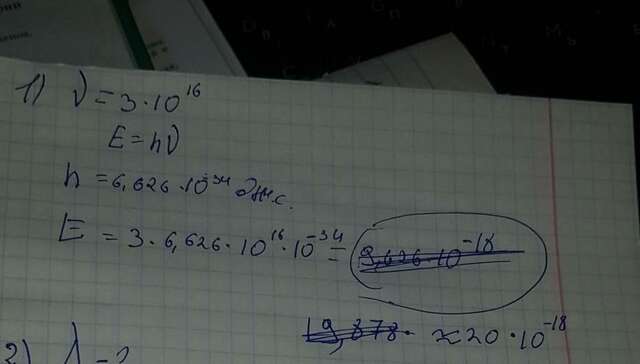 1) ν = 3·10¹⁶
E = hν
h = 6,626·10⁻³⁴ Дж·с.
E = 3·6,626·10¹⁶·10⁻³⁴ = 9,626·10⁻¹⁸
19,878· ≈20·10⁻¹⁸
2) λ = ?